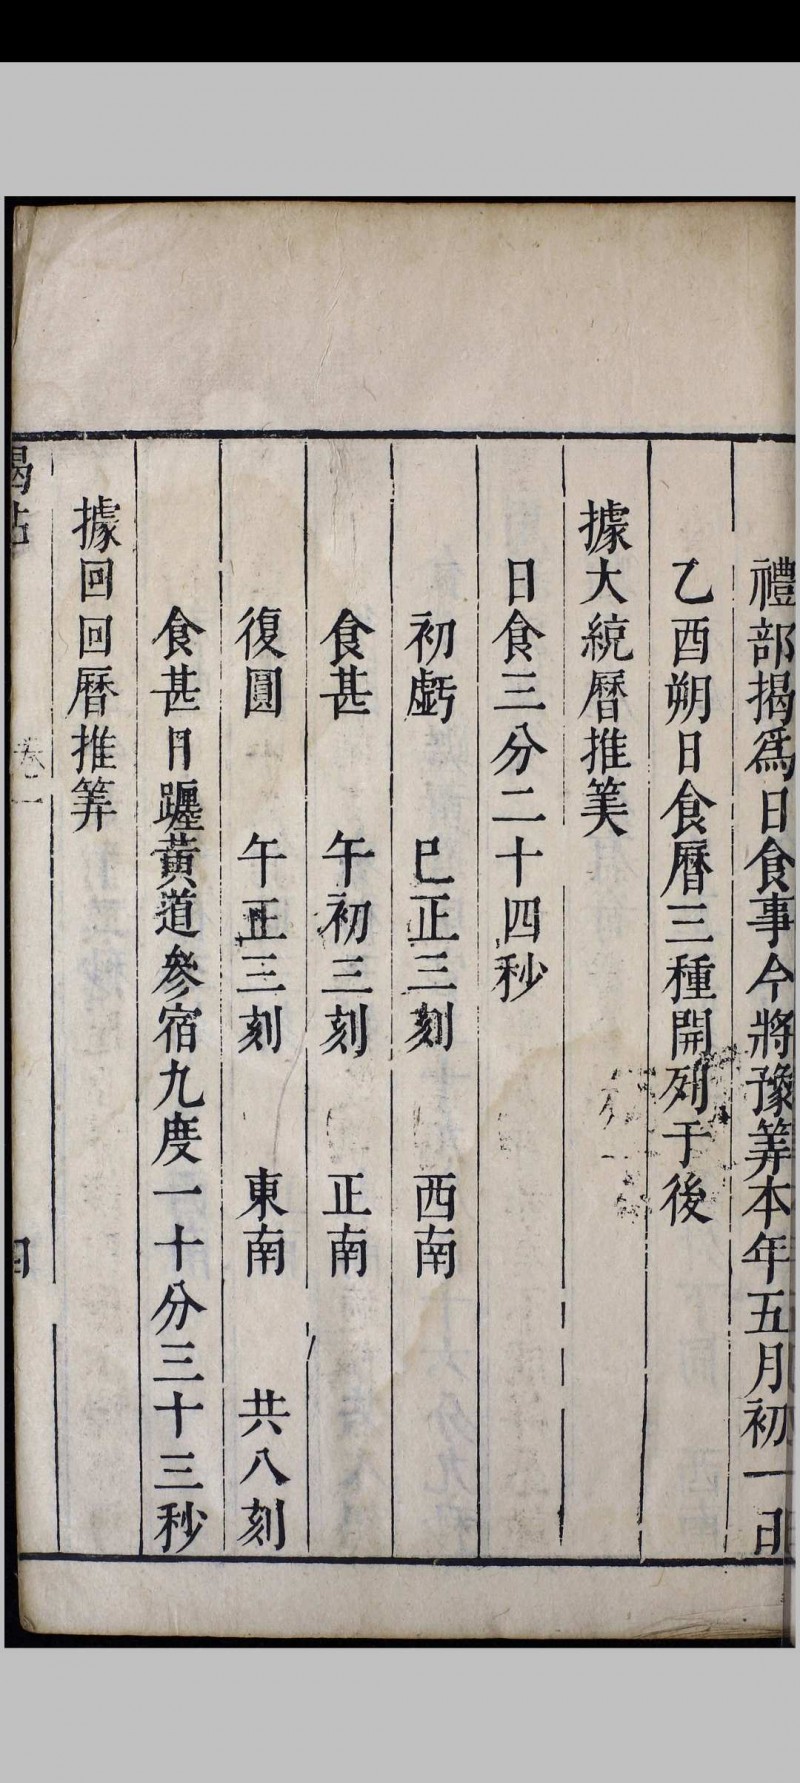 禮部揭爲日食事今將豫筭本年五月初一日
乙酉朔日食曆三種開列于後
據大統曆推筭
日食三分二十四秒
初虧 巳正三刻 西南
食甚 午初三刻 正南
復圓 午正三刻 東南 共八刻
食甚日躔黃道參宿九度一十分三十三秒
據回回曆推筭
揭帖 卷一 四